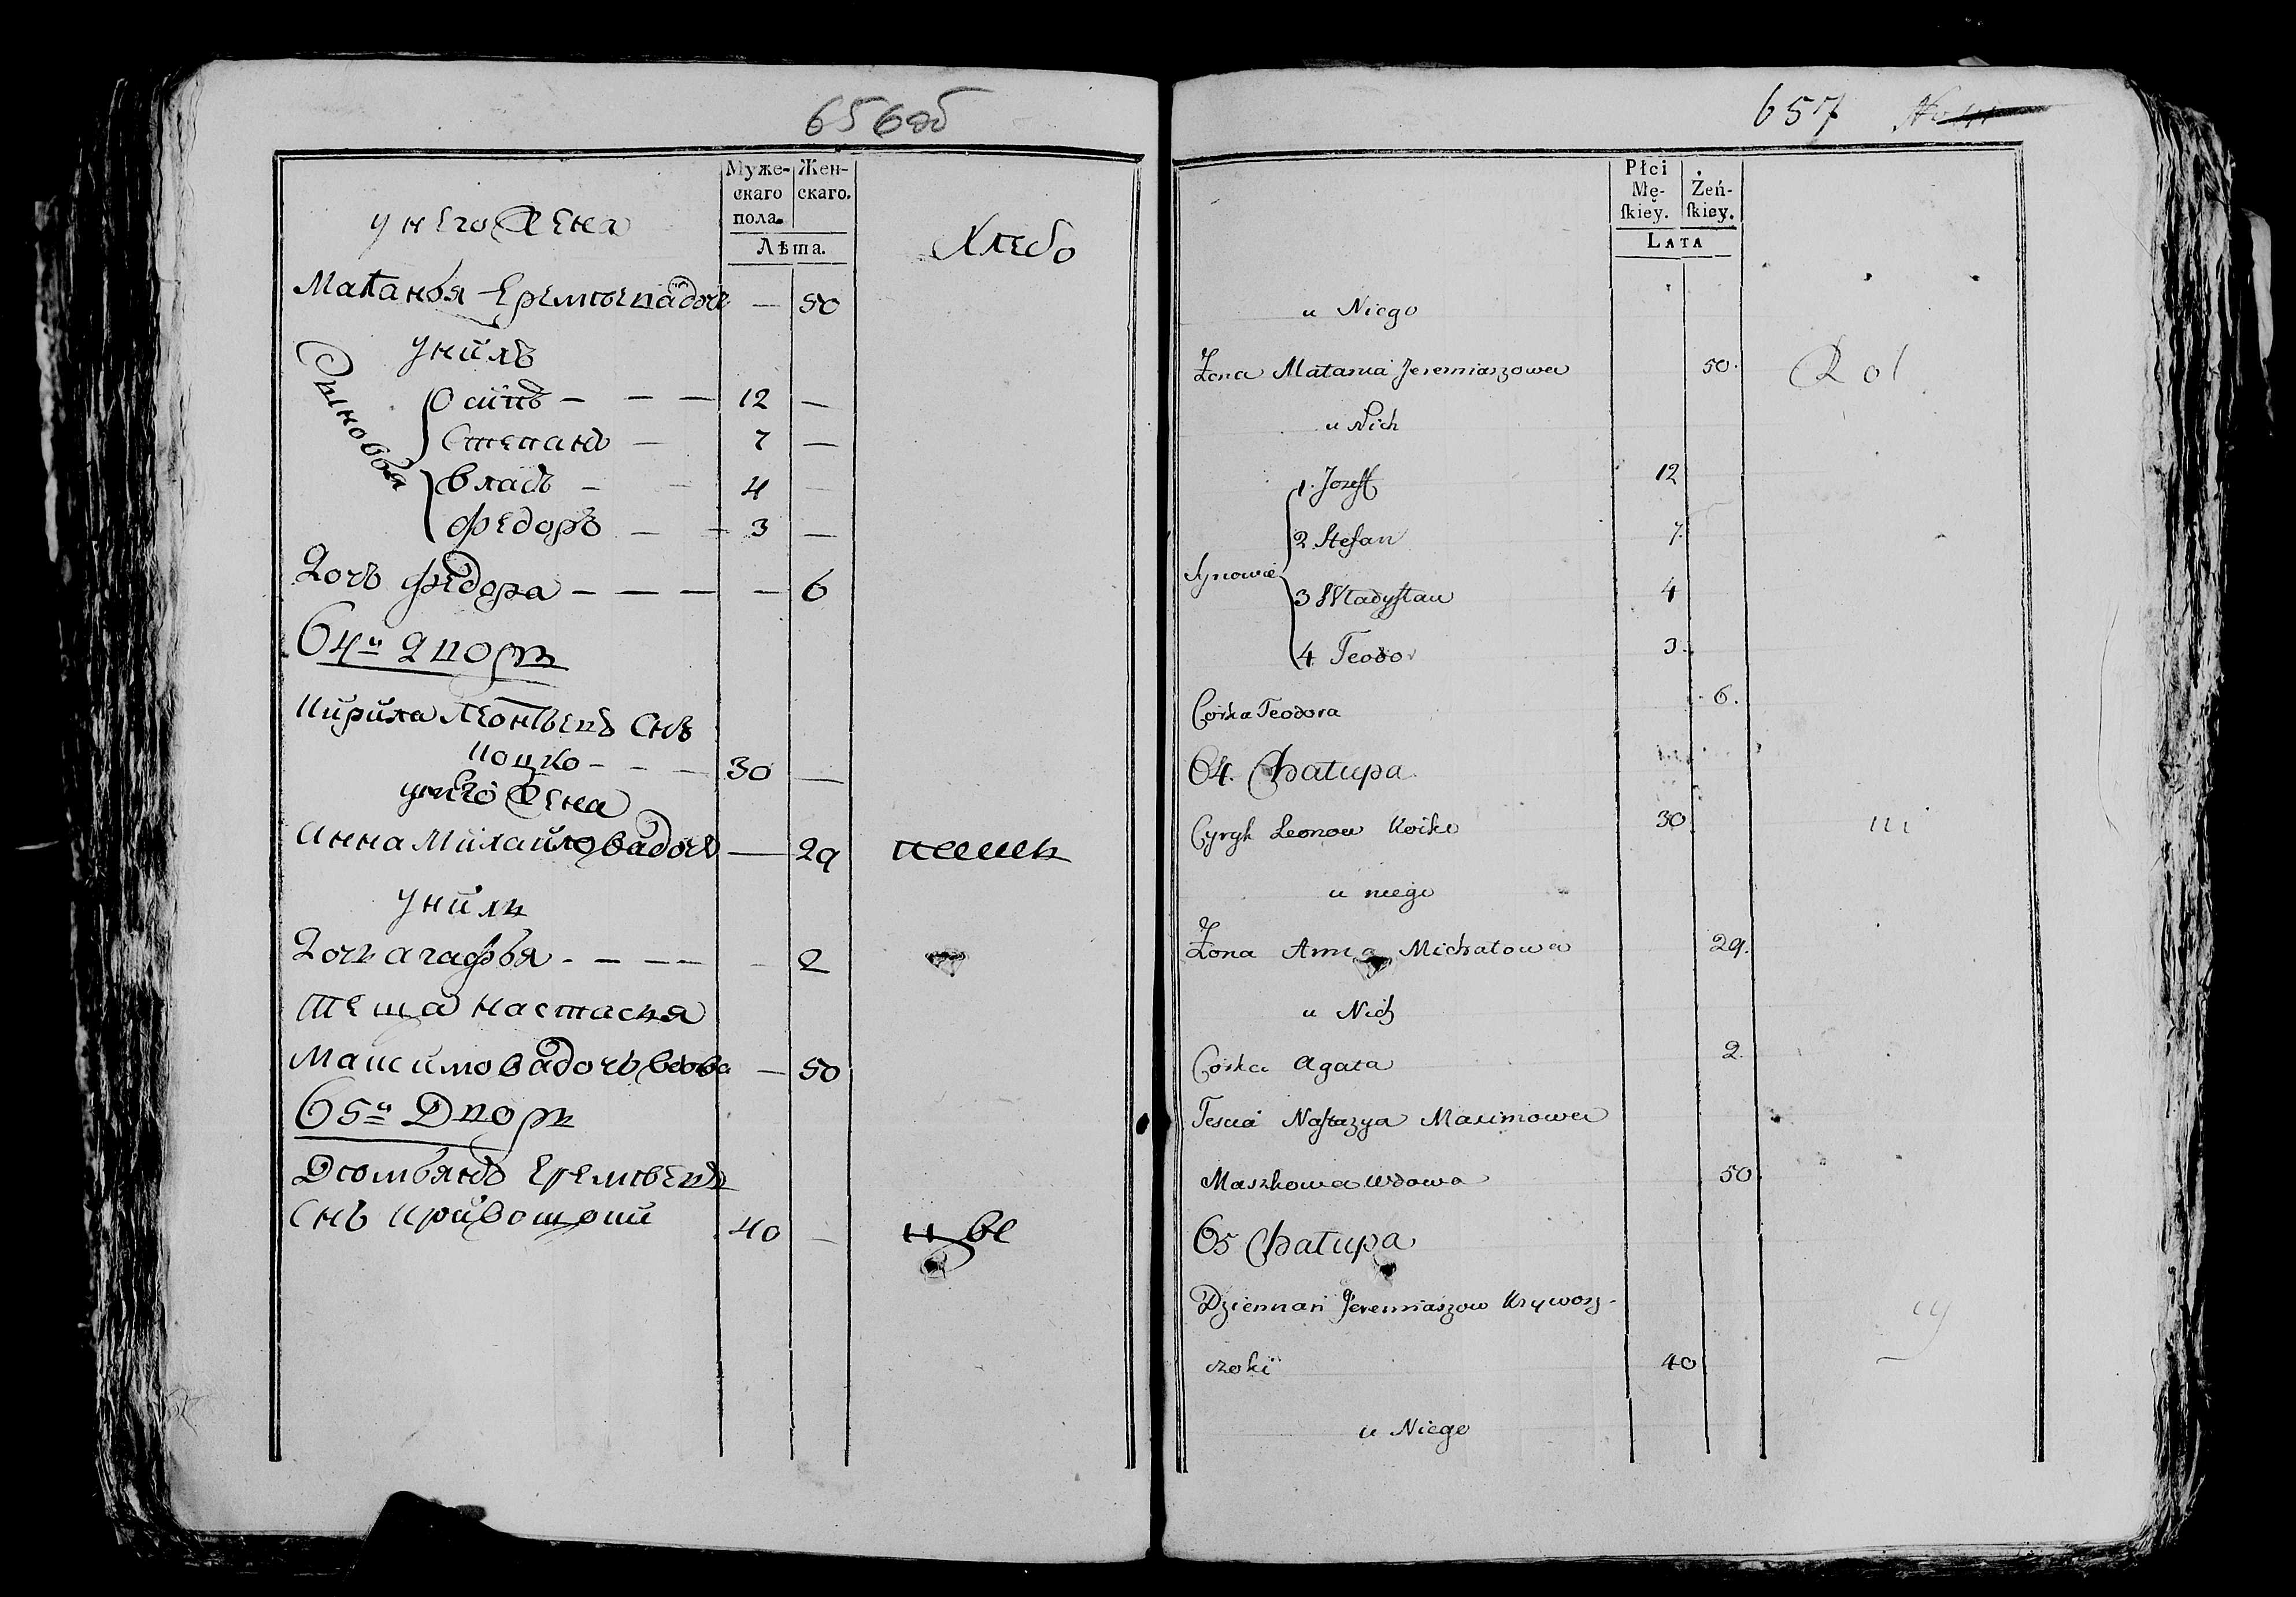 656об
Муже- Жен-
скаго скаго.
пола.
Лѣта.
у него жена
Хлебо
Маланья Еремѣева дочь — 50
у нихъ
Сыновья
Осипъ — — — 12 —
Степанъ — 7 —
Власъ — — 4 —
Федоръ — — 3 —
Дочь Федора — — — — 6
64й Дворъ
Кирила Леонтьевъ Снъ
Коцко — — — 30 —
у него жена
Анна Михайлова дочь — 29
пашец
у нихъ
Дочь Агафья — — — — 2
теща Настасия
Максимова дочь вдова — 50
65й Дворъ
Демьянъ Еремѣевъ
Снъ Кривошии 40 —
изве
657
Płci
Mę- Żeń-
ſkiey. ſkiey.
LATA
u Niego
Żona Małania Jeremiaszowa 50.
Rol
u Nich
1. Jozeff 12
2 Stefan 7.
Synowie
3 Władyſław 4
4 Teodor 3.
Corka Teodora 6.
64. Chałupa
Cyryk Leonow Kocko 30
ni
u niego
Żona Anna Michałowa 29.
u Nich
Corka Agata 2.
Tescia Naſtazya Maximowa
Maszkowa wdowa 50.
65 Chałupa
Dziemian Jeremiaszow Krywosz-
czoki 40
u Niego